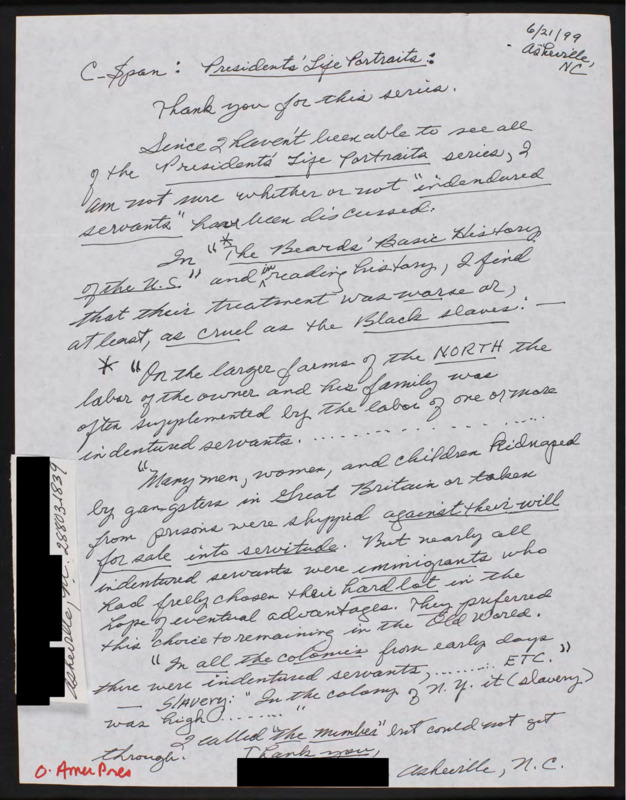 6/21/99
Asheville,
NC
C-Span: Presidents' Life Portraits:
Thank you for this series.
Since I haven't been able to see all
of the Presidents' Life Portraits series, I
am not sure whether or not "indendured
servants" have been discussed.
In "*The Beards' Basic History
of the U.S." and in reading history, I find
that their treatment was worse or,
at least, as cruel as the Black slaves: —
* "On the larger farms of the NORTH the
labor of the owner and his family was
often supplemented by the labor of one or more
indentured servants. . . . . . . . . . . . . . . . .
"Many men, women, and children kidnaped
by gangsters in Great Britain or taken
from prisons were shipped against their will
for sale into servitude. But nearly all
indentured servants were immigrants who
had freely chosen their hard lot in the
hope of eventual advantages. They preferred
this choice to remaining in the Old World.
"In all the colonies from early days
there were indentured servants, ........ ETC."
— Slavery: "In the colony of N.Y. it (slavery)
was high ........ "
I called "the number" but could not get
through. Thank you,
Asheville, N.C.
O. Amer Pres
Asheville, NC 28803-1839